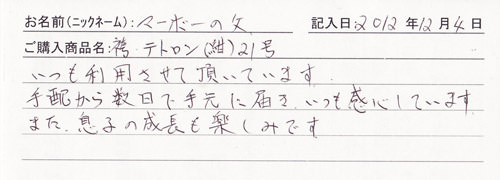 お名前(ニックネーム):マーボーの父 記入日:2012年12月4日
ご購入商品名:袴 テトロン(紺)21号
いつも利用させて頂いています.
手配から数日で手元に届き、いつも感心しています
また、息子の成長も楽しみです